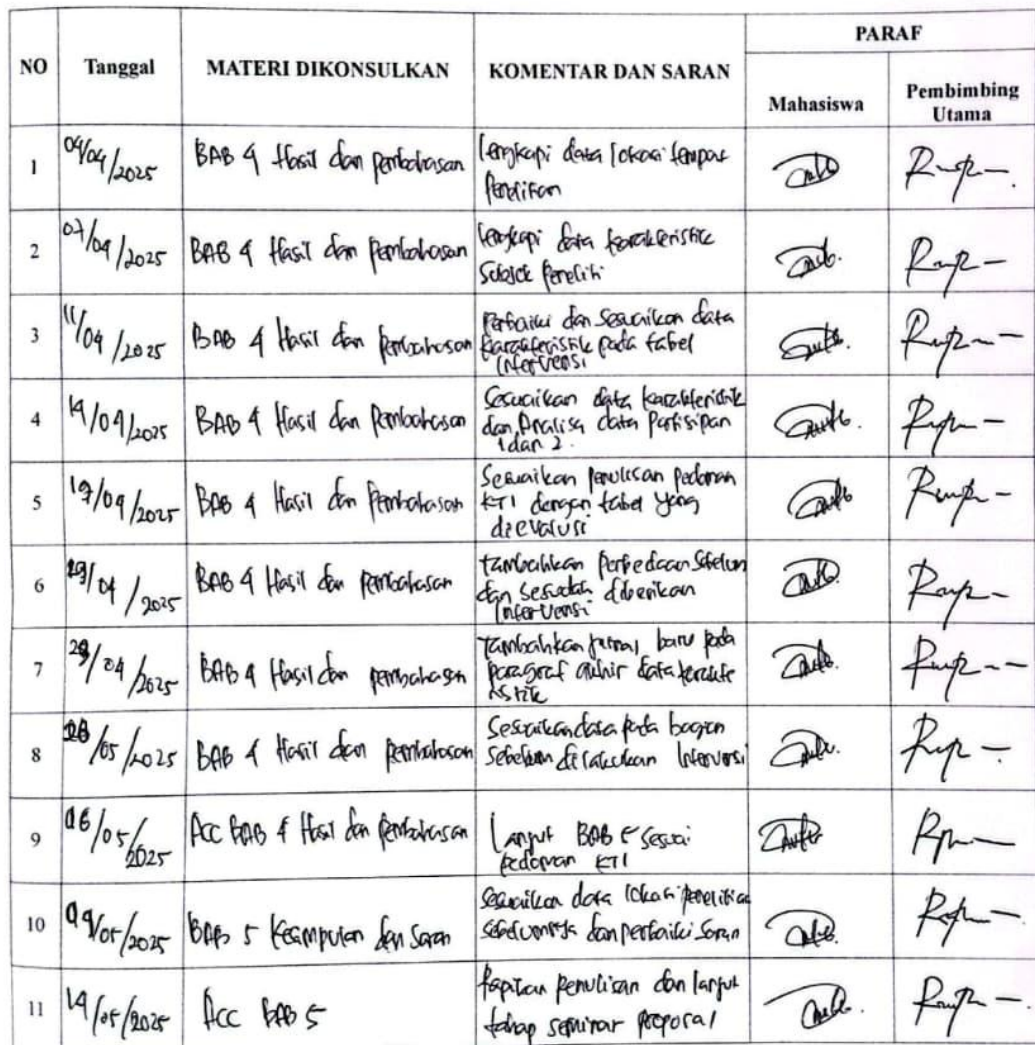 PARAF
NO Tanggal MATERI DIKONSULKAN KOMENTAR DAN SARAN
Mahasiswa Pembimbing
Utama
1 04/04/2025 BAB 4 Hasil dan pembahasan lengkapi data lokasi tempat
Penelitian
2 07/04/2025 BAB 4 Hasil dan Pembahasan lengkapi data karakteristik
Subjek Peneliti
3 11/04/2025 BAB 4 Hasil dan Pembahasan Perbaiki dan Sesuaikan data
karakteristik pada tabel
Intervensi
4 14/04/2025 BAB 4 Hasil dan Pembahasan Sesuaikan data karakteristik
dan Analisa data Partisipan
1 dan 2.
5 /04/2025 BAB 4 Hasil dan Pembahasan Sesuaikan penulisan pedoman
KTI dengan tabel yang
dievaluasi
6 /04/2025 BAB 4 Hasil dan Pembahasan tambahkan perbedaan Sebelum
dan Sesudah diberikan
Intervensi
7 /04/2025 BAB 4 Hasil dan pembahasan tambahkan jurnal baru pada
paragraf akhir data karakte
ristik
8 /05/2025 BAB 4 Hasil dan pembahasan Sesuaikan data pada bagian
Sebelum dilakukan Intervensi
9 06/05/2025 Acc BAB 4 Hasil dan Pembahasan Lanjut BAB 5 Sesuai
Pedoman KTI
10 09/05/2025 BAB 5 Kesimpulan dan Saran Sesuaikan data lokasi penelitian
sebelumnya dan perbaiki Saran
11 14/05/2025 Acc BAB 5 Rapikan penulisan dan lanjut
tahap seminar proposal